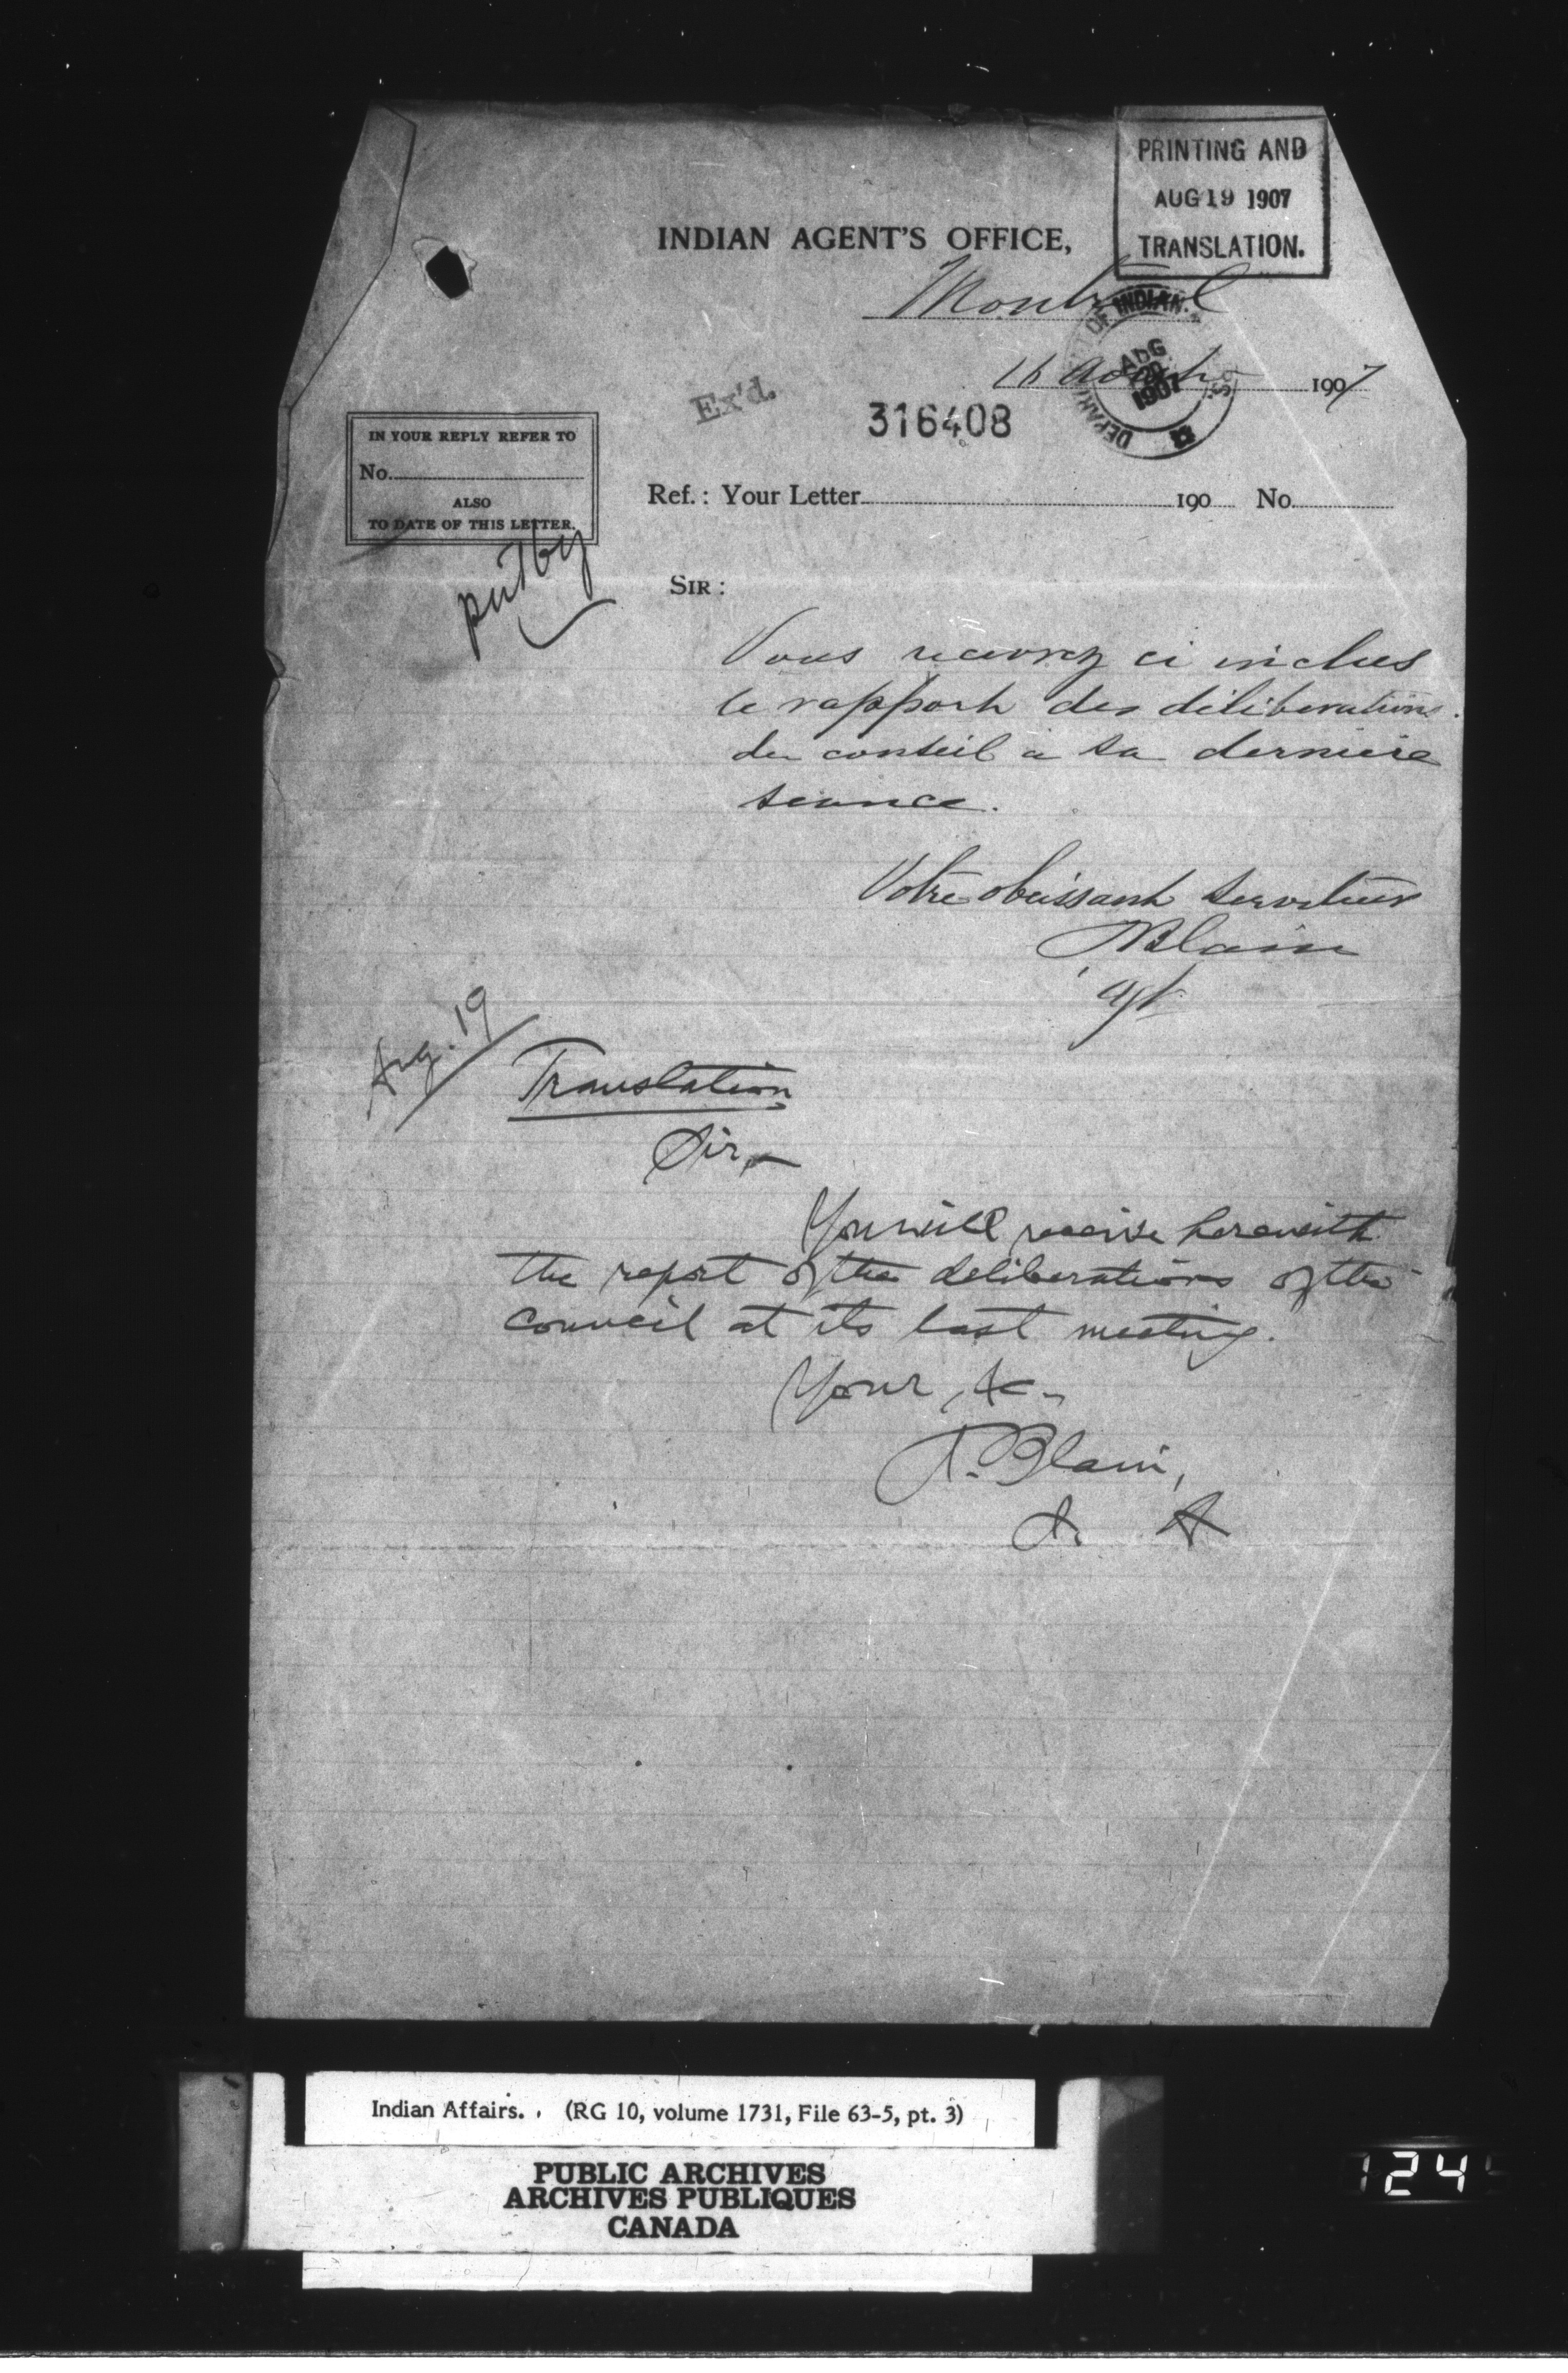 PRINTING AND
AUG 19 1907
TRANSLATION.
INDIAN AGENT'S OFFICE,
Montreal
DEPARTMENT OF INDIAN
AUG 20 1907
16 Août 1907
Ex'd.
316408
IN YOUR REPLY REFER TO
No.
ALSO
TO DATE OF THIS LETTER.
Ref.: Your Letter 190 No.
put by
SIR:
Vous recevrez ci inclus
le rapport des déliberations
du conseil à sa derniere
seance.
Votre obeissant serviteur
Blain
agt
Aug. 19
Translation
Sir,—
You will receive herewith
the report of the deliberations of the
council at its last meeting.
Your, &c.
Blain,
A
Indian Affairs. (RG 10, volume 1731, File 63-5, pt. 3)
PUBLIC ARCHIVES
ARCHIVES PUBLIQUES
CANADA
124